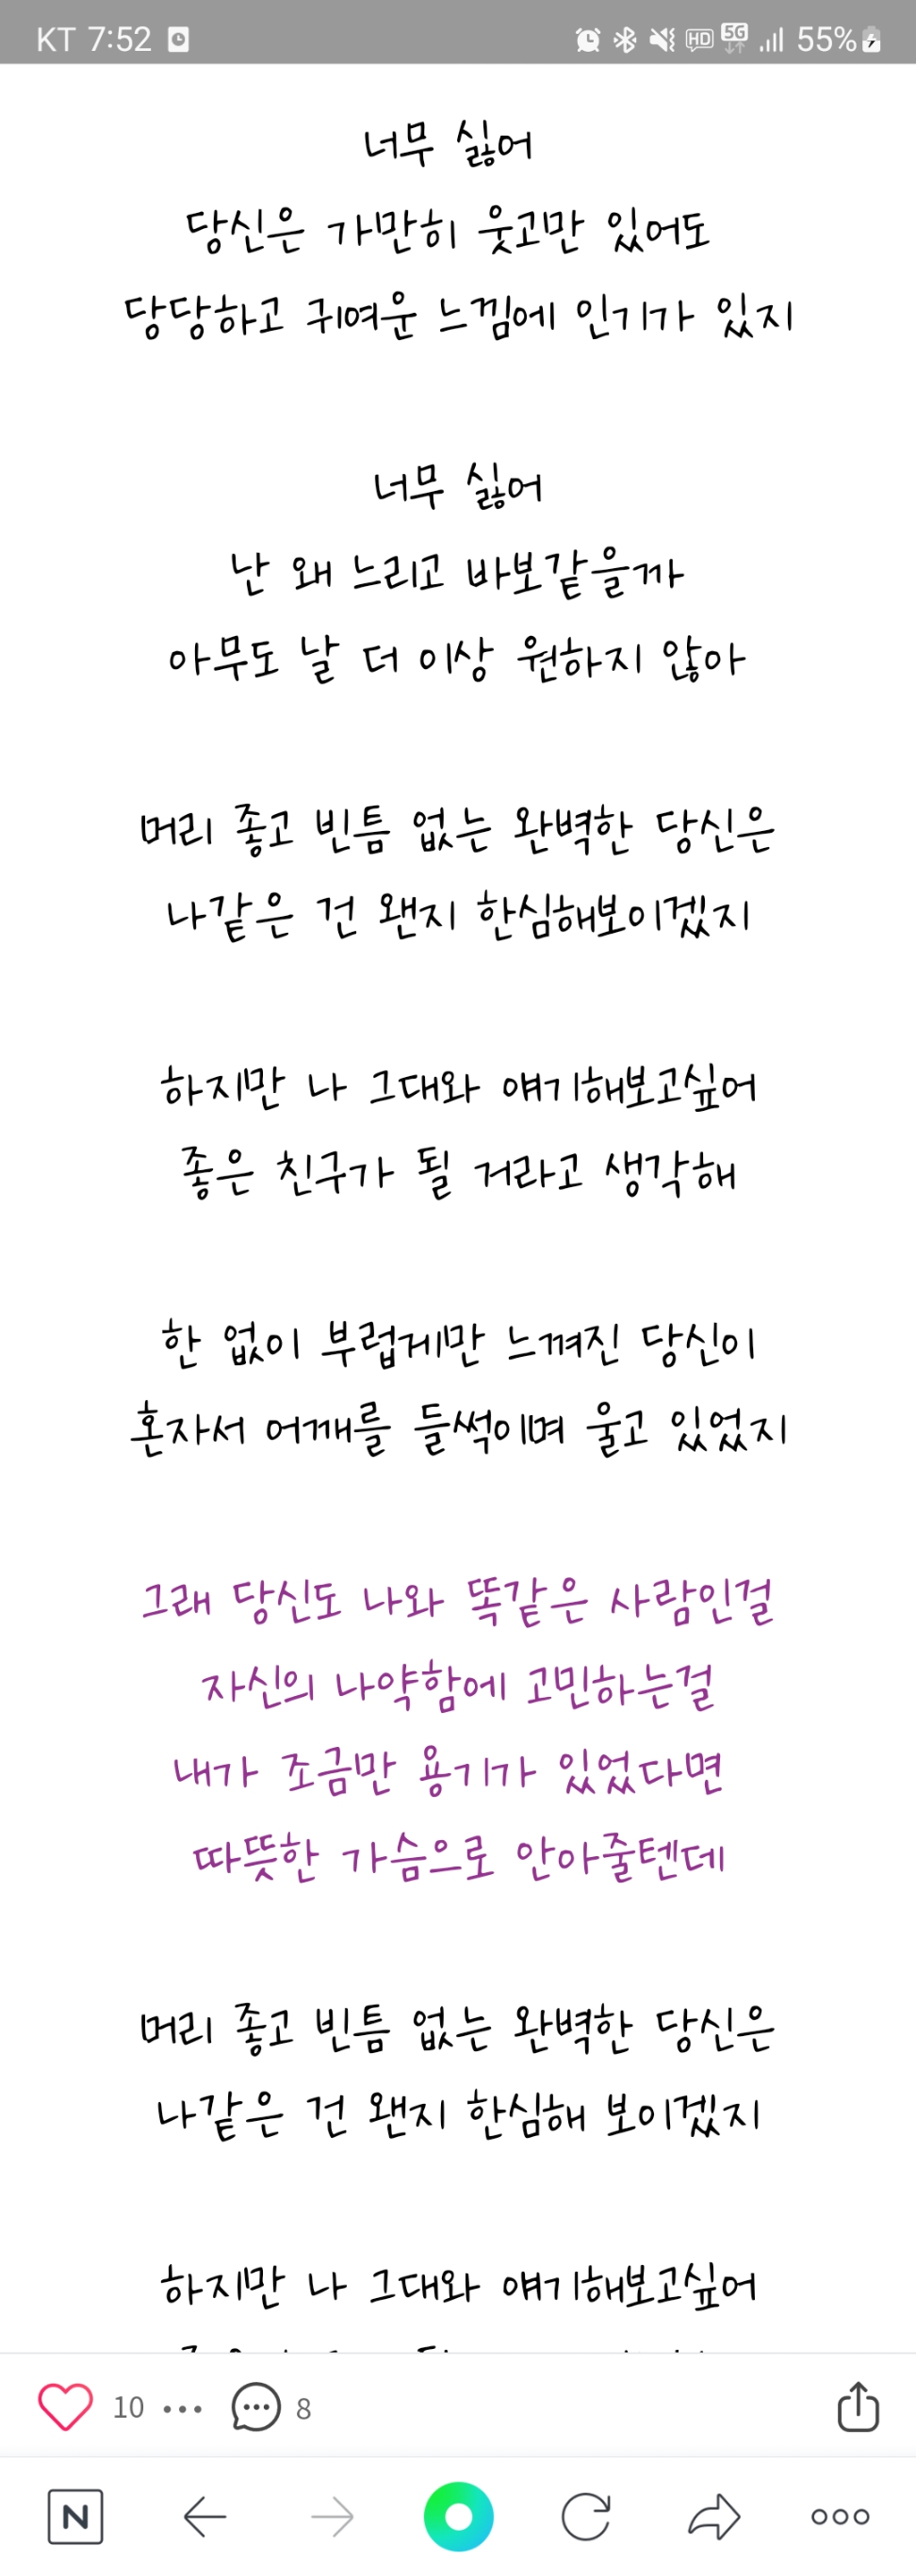 KT 7:52
HD 5G 55%
너무 싫어
당신은 가만히 웃고만 있어도
당당하고 귀여운 느낌에 인기가 있지
너무 싫어
난 왜 느리고 바보같을까
아무도 날 더 이상 원하지 않아
머리 좋고 빈틈 없는 완벽한 당신은
나같은 건 왠지 한심해보이겠지
하지만 나 그대와 얘기해보고싶어
좋은 친구가 될 거라고 생각해
한 없이 부럽게만 느껴진 당신이
혼자서 어깨를 들썩이며 울고 있었지
그래 당신도 나와 똑같은 사람인걸
자신의 나약함에 고민하는걸
내가 조금만 용기가 있었다면
따뜻한 가슴으로 안아줄텐데
머리 좋고 빈틈 없는 완벽한 당신은
나같은 건 왠지 한심해 보이겠지
하지만 나 그대와 얘기해보고싶어
10 8
N